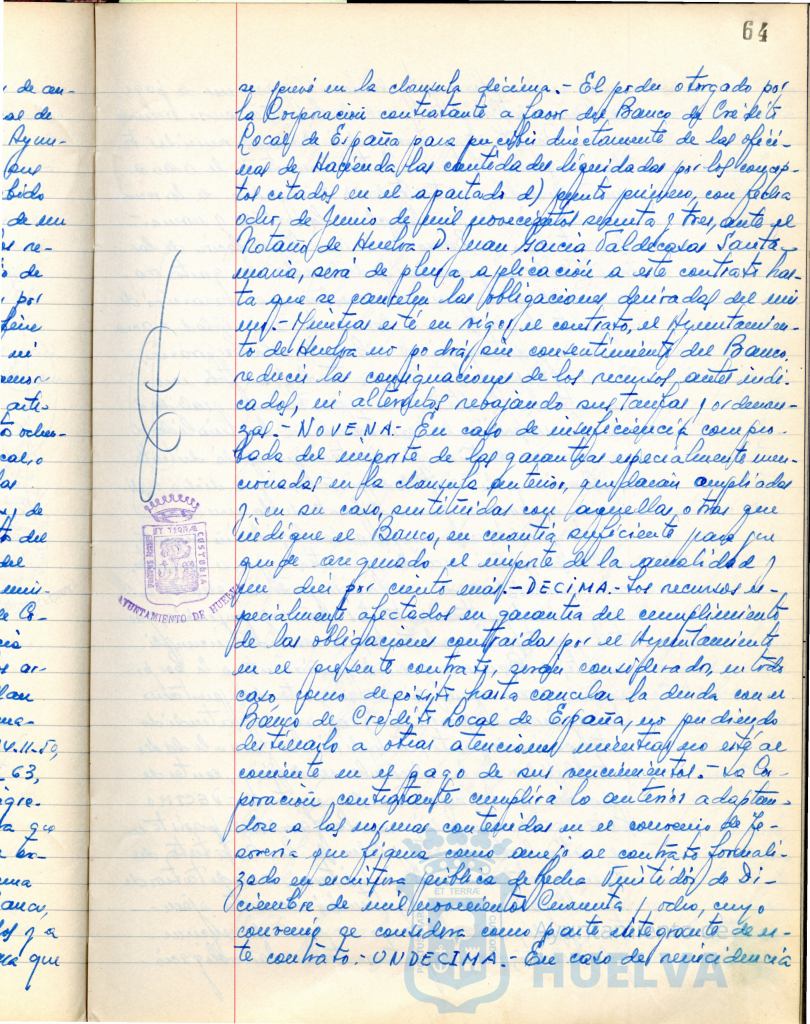 64
se prevé en la clausula décima.- El poder otorgado por
la Corporación contratante a favor del Banco de Crédito
Local de España para percibir directamente de las ofici-
nas de Hacienda las cantidades liquidadas por los concep-
tos citados en el apartado d) punto primero, con fecha
ocho, de Junio de mil novecientos sesenta y tres, ante el
Notario de Huelva D. Juan Garcia Valdecasas Santa-
maria, será de plena aplicación a este contrato has-
ta que se cancelen las obligaciones derivadas del mis-
mo.- Mientras esté en vigor el contrato, el Ayuntamien-
to de Huelva no podrá, sin consentimiento del Banco,
reducir las consignaciones de los recursos antes indi-
cados, ni alterarlos rebajando sus tarifas y ordenan-
zas.- NOVENA.- En caso de insuficiencia compro-
bada del importe de las garantias especialmente men-
cionadas en la clausula anterior, quedarán ampliadas
y en su caso, sustituidas con aquellas otras que
indique el Banco, en cuantia suficiente para que
quede asegurado el importe de la anualidad y
un diez por ciento más.- DECIMA.- Los recursos es-
pecialmente afectados en garantia del cumplimiento
de las obligaciones contraidas por el Ayuntamiento
en el presente contrato, serán considerados, en todo
caso como depósito hasta cancelar la deuda con el
Banco de Credito Local de España, no pudiendo
destinarlo a otras atenciones mientras no esté al
corriente en el pago de sus vencimientos.- La Cor-
poración contratante cumplirá lo anterior adaptan-
dose a las normas contenidas en el convenio de Te-
sorería que figura como anejo al contrato formali-
zado en escritura pública de fecha Veintidos de Di-
ciembre de mil novecientos Cincuenta y ocho, cuyo
convenio se considera como parte integrante de es-
te contrato.- UNDECIMA.- En caso de reincidencia
ET TERRAE CUSTODIA
AYUNTAMIENTO DE HUELVA
Ayuntamiento de
HUELVA